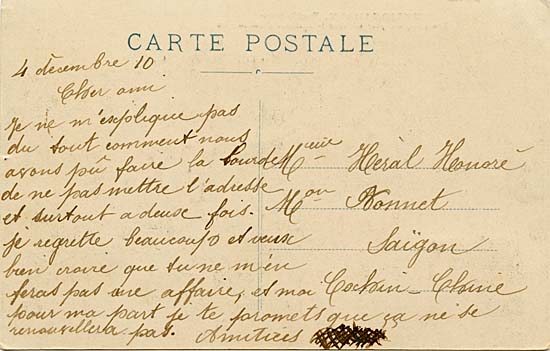 CARTE POSTALE
4 décembre 10
Cher ami
Je ne m'explique pas
du tout comment nous
avons pû faire la bourde
de ne pas mettre l'adresse
et surtout a deux fois.
je regrette beaucoup et veux
bien croire que tu ne m'en
feras pas une affaire, et moi
pour ma part je te promets que ça ne se
renouvellera pas.
Amitiés
Héral Honoré
Mon Nonnet
Saïgon
Cochin-Chine